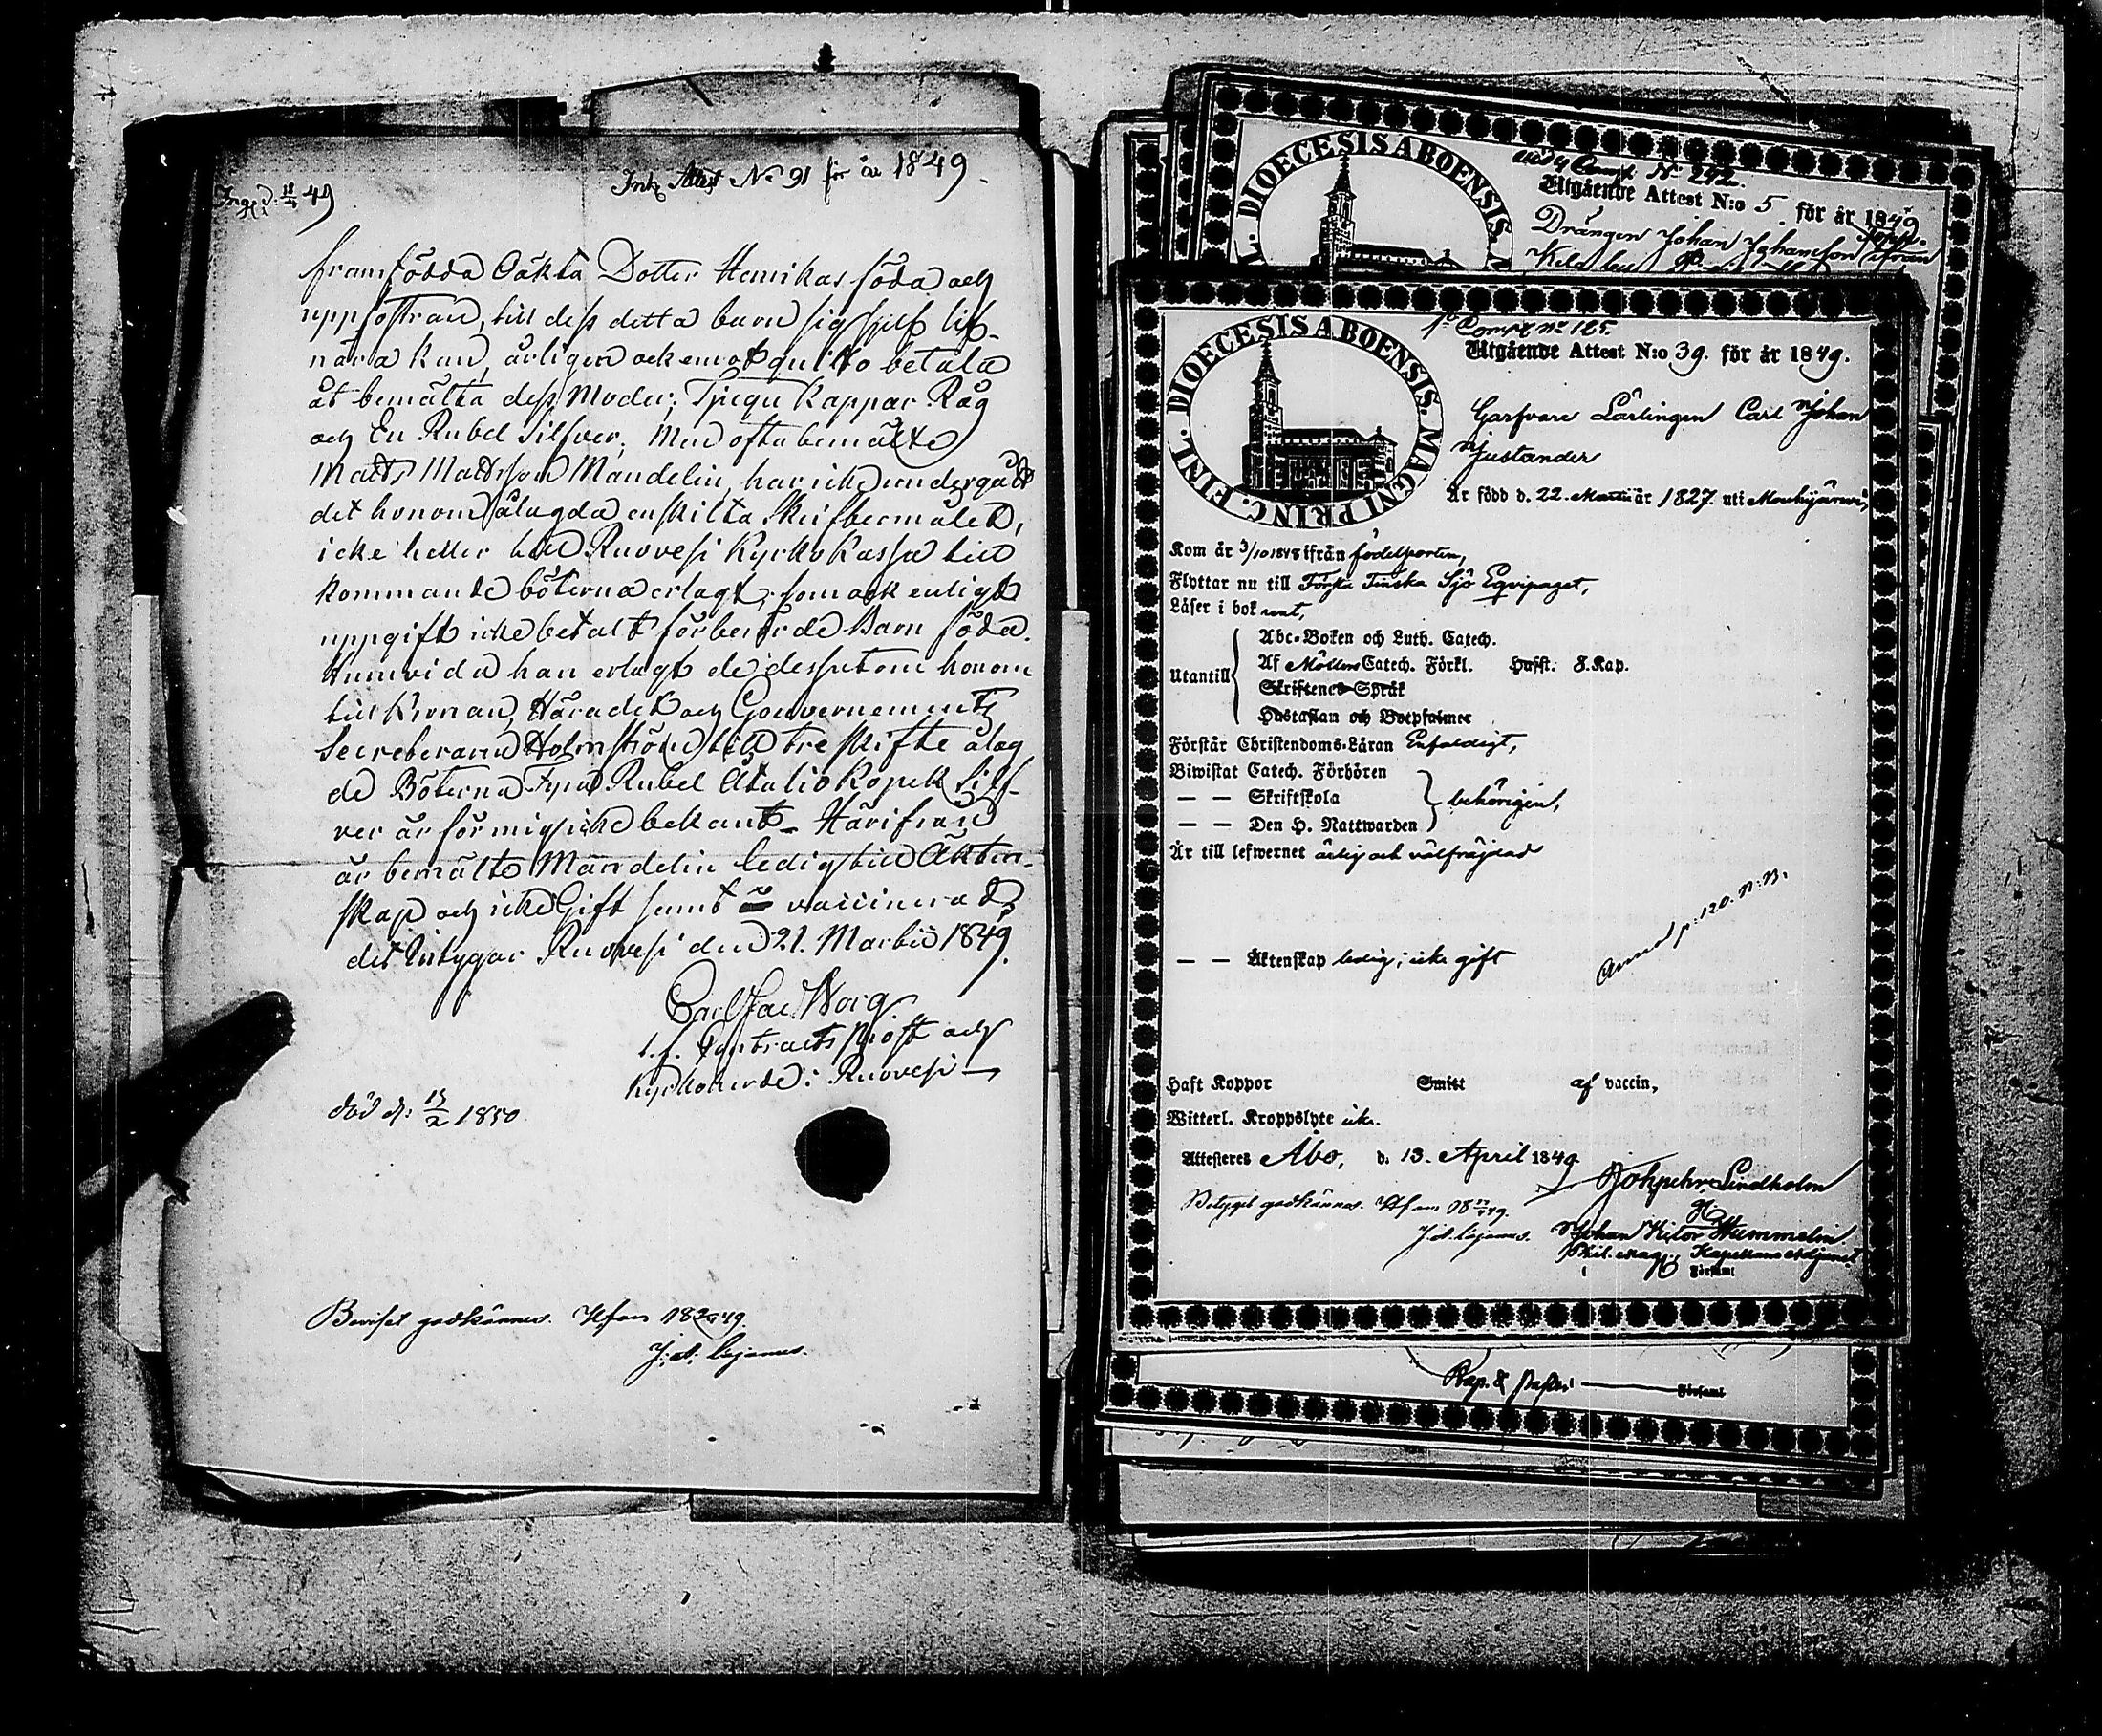 Ink. Attest No 91 för år 1849.
49
framfödda Oäkta Dotter Henrikas föda och
uppfostran, till dess detta barn sig sjelf lif-
nära kan, årligen och emot quitto betala
åt bemälta dess Moder, Tjugu Kappar Råg
och En Rubel Silfver; Men ofta bemälte
Matts Mattsson Mandelin, har icke undergått
det honom ålagda enskilta Skriftermålet,
icke heller till Ruovesi Kyrko Kassa till
kommande böterna erlagt, som ock enligt
uppgift icke betalt förberörde Barn föda.
Huruvida han erlagt de dessutom honom
till Kronan, Häradet och Gouvernements
Secreteraren Holmström till treskifte ålag
de Böterna Fyra Rubel Åtatio Kopek Silf-
ver är för mig icke bekant. Härifrån
är bemälte Mandelin ledig till Äkten-
skap och icke Gift samt vaccinerad,
det Intygar Ruovesi den 21. Martii 1849.
Carl Jac. Borg
t.f. Contracts Prost och
Kyrkoherde i Ruovesi
död d: 15/2 1850
Beviset godkännes. Hfors 49.
J. A. Cajanus.
Compt N 242.
Utgående Attest N:o 5 för år 1849
Drängen Johan Johansson ifrån
1a Compt no 125.
Utgående Attest N:o 39. för år 1849.
FINL. DIOECESIS ABOENSIS. MAGNI PRINC.
Garfvare Lärlingen Carl Johan
Justander
Är född d. 22. Martii år 1827. uti Mouhijärvi,
Kom år 3/10 1848 ifrån födelseorten,
Flyttar nu till Första Finska Sjö Eqvipaget,
Läser i bok rent,
Utantill
Abc-Boken och Luth. Catech.
Af Möllers Catech. Förkl. Husst. 8. Kap.
Skriftenes Språk
Hustaflan och Botpsalmer
Förstår Christendoms-Läran Enfaldigt,
Biwistat Catech. Förhören
— — Skriftskola behörigen,
— — Den H. Nattwarden
Är till lefwernet ärlig och välfrejdad
— — Äktenskap ledig; icke gift
Annot p. 120. N.B.
Haft Koppor Smitt af vaccin,
Witterl. Kroppslyte icke.
Attesteres Åbo, d. 13. April 1849
Lindholm
Betyget godkännes. Hfors
J. A. Cajanus.
Johan Victor Hummelin.
Phil. Mag., Kapellans Adjunct
i Församl
Kap. & Pastor Församl